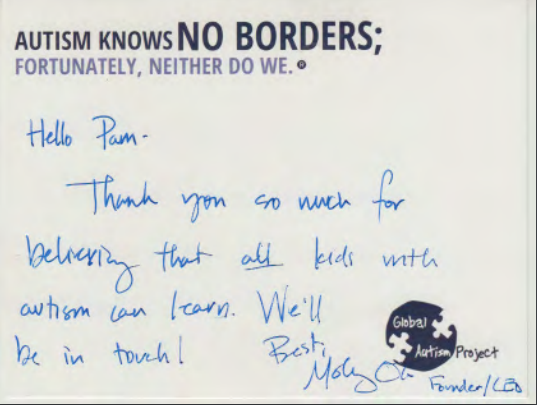 AUTISM KNOWS NO BORDERS;
FORTUNATELY, NEITHER DO WE.®
Hello Pam-
Thank you so much for
believing that all kids with
autism can learn. We'll
be in touch!
Best,
Global
Autism Project
Founder/CEO